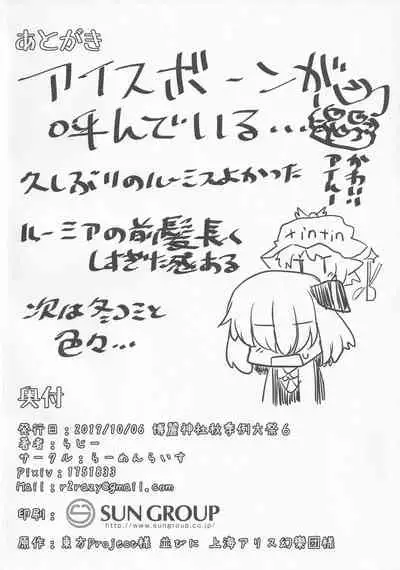 あとがき
アイスボーンが
呼んでいる...
かわいい
アイルー
久しぶりのルーミスよかった
ルーミアの前髪長く
しすぎた感ある
tintin
次は冬コミと
色々...
奥付
発行日：2019/10/06 博麗神社秋季例大祭6
著者：らじー
サークル：らーめんらいす
Pixiv：1751833
Mail：r2razy@gmail.com
印刷：SUN GROUP
http://www.sungroup.co.jp/
原作：東方Project様 並びに 上海アリス幻樂団様